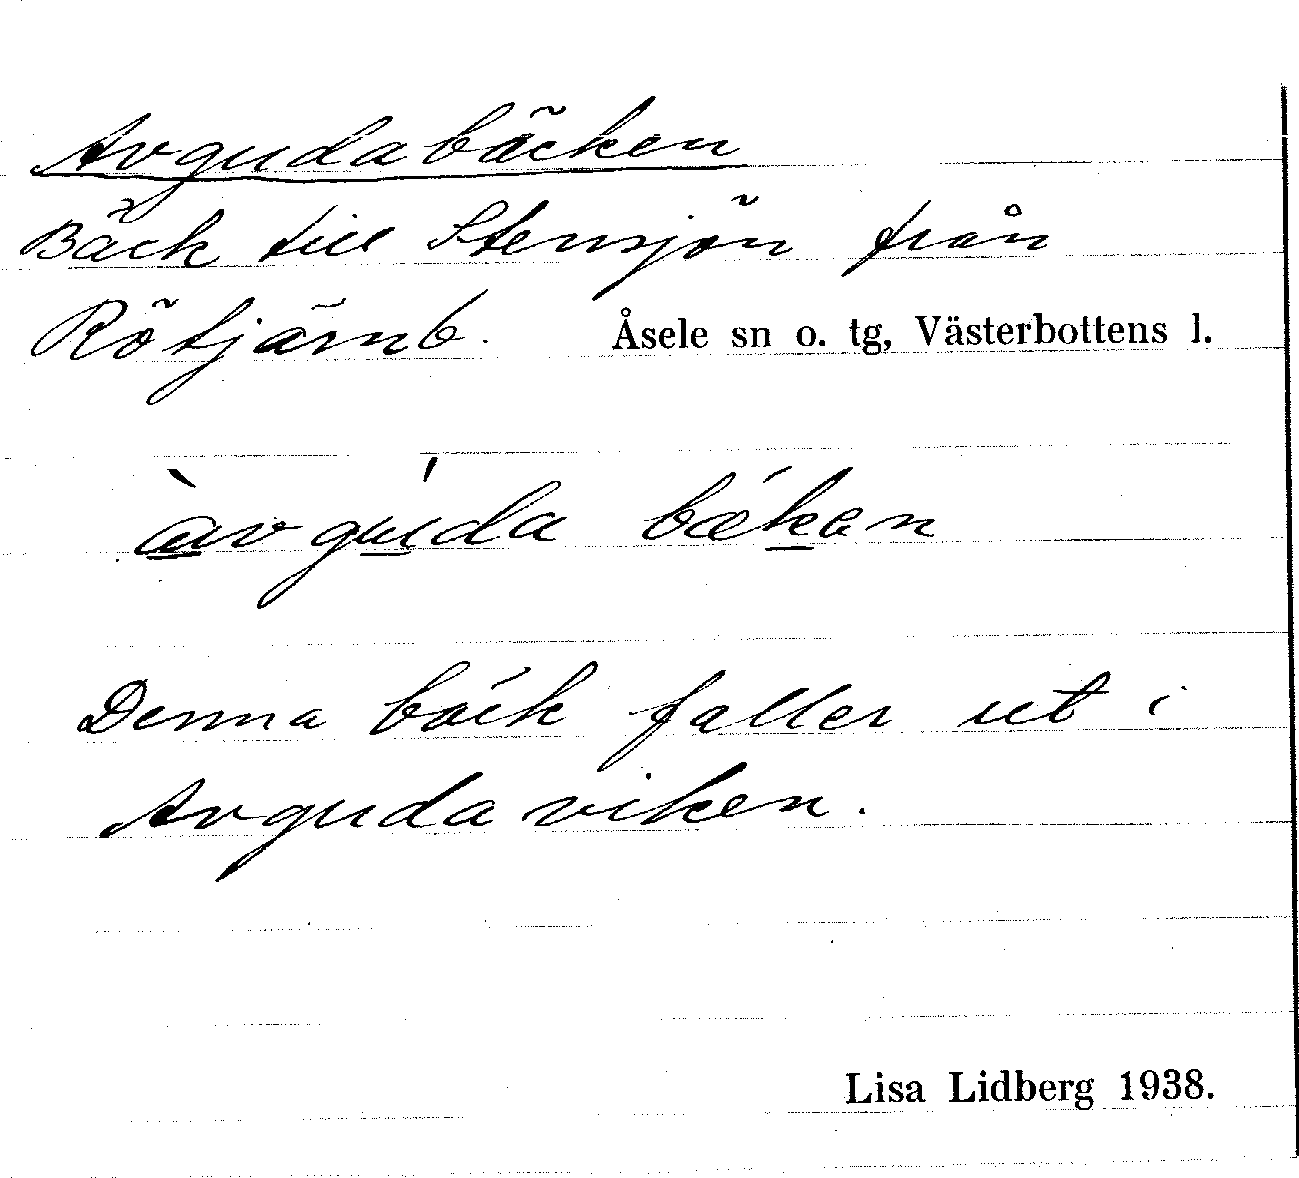 Avgudabäcken
Bäck till Stensjön från
Rötjärnb. Åsele sn o. tg, Västerbottens l.
àvgúda bǽken
Denna bäck faller ut i
Avgudaviken.
Lisa Lidberg 1938.